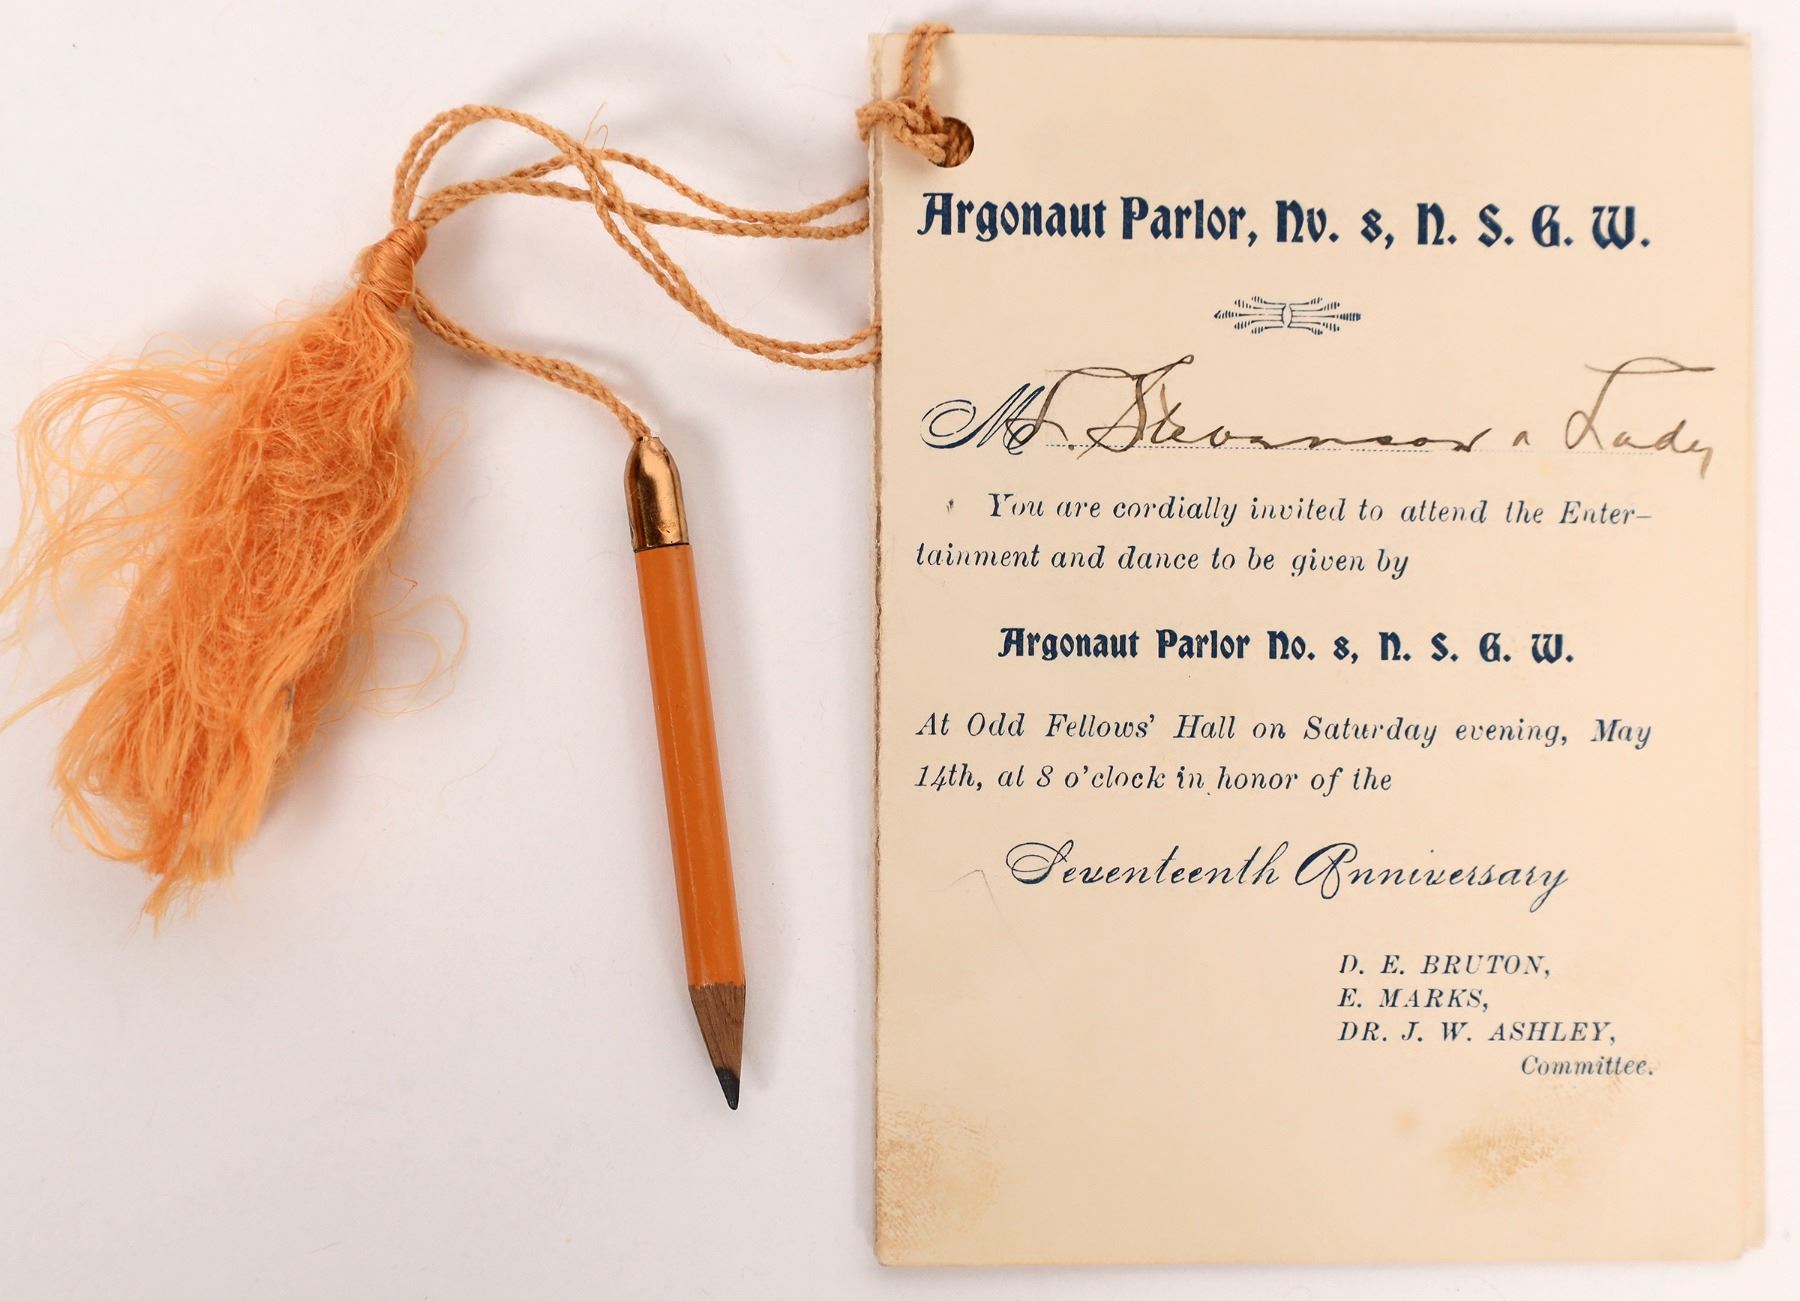 Argonaut Parlor, Nv. 8, N. S. G. W.
Mr. Stevenson a Lady
You are cordially invited to attend the Enter-
tainment and dance to be given by
Argonaut Parlor No. 8, N. S. G. W.
At Odd Fellows' Hall on Saturday evening, May
14th, at 8 o'clock in honor of the
Seventeenth Anniversary
D. E. BRUTON,
E. MARKS,
DR. J. W. ASHLEY,
Committee.